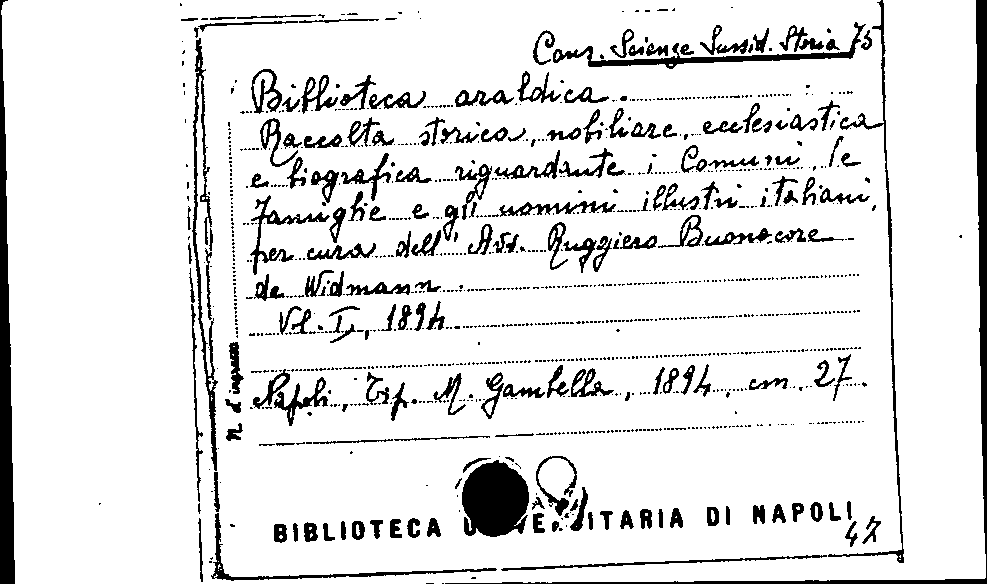 Cons. Scienze Sussid. Storia 75
Biblioteca araldica.
Raccolta storica, nobiliare, ecclesiastica
e biografica riguardante i Comuni, le
famiglie e gli uomini illustri italiani,
per cura dell'Avv. Ruggiero Buonocore
de Widmann.
Vl. I, 1894.
Napoli, Tip. M. Gambella, 1894, cm. 27.
N. d'ingresso
BIBLIOTECA UNIVERSITARIA DI NAPOLI
47